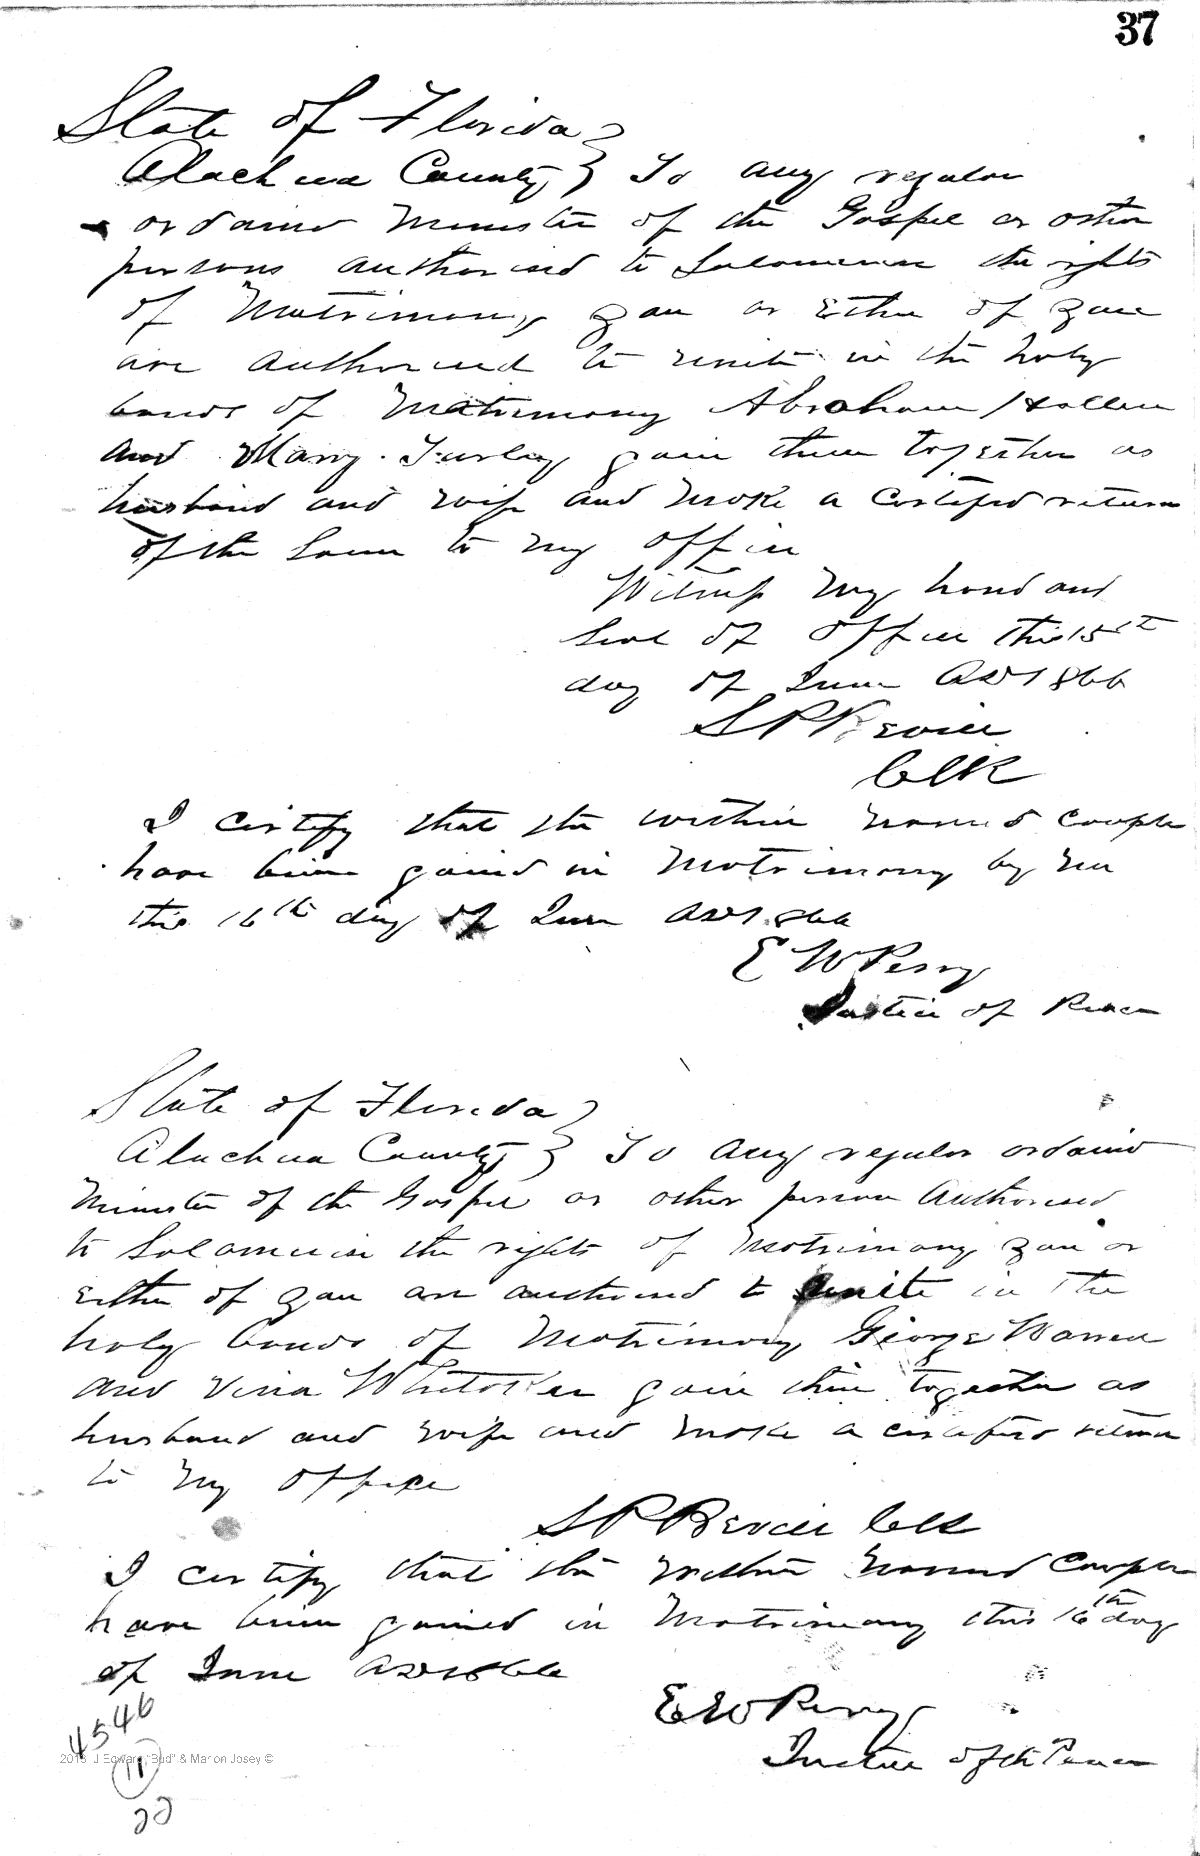 37
State of Florida }
Alachua County } To any regular
ordaind Minister of the Gospel or other
persons authorised to Solomnise the rights
of Matrimony you or Either of you
are authorised to unite in the holy
bonds of Matrimony Abraham
and Mary goin them together as
husband and wife and make a certified return
of the Same to my office
Witness my hand and
Seal of office this 15th
day of June AD 1866
S P
Clk
I certify that the within named couple
have been goined in Matrimony by me
this 16th day of June AD 1866
E W Perry
Justice of Peace
State of Florida }
Alachua County } To any regular ordaind
Minister of the Gospel or other person Authorised
to Solomnise the rights of Matrimony you or
Either of you are authorised to unite in the
holy bonds of Matrimony George Warren
and goin them together as
husband and wife and make a certified return
to my office
S P Clk
I certify that the within named Couple
have been goined in Matrimony this 16th day
of June AD 1866
E W Perry
Justice of the Peace
4546
11
22
2013 J Edward "Bud" & Marion Josey ©